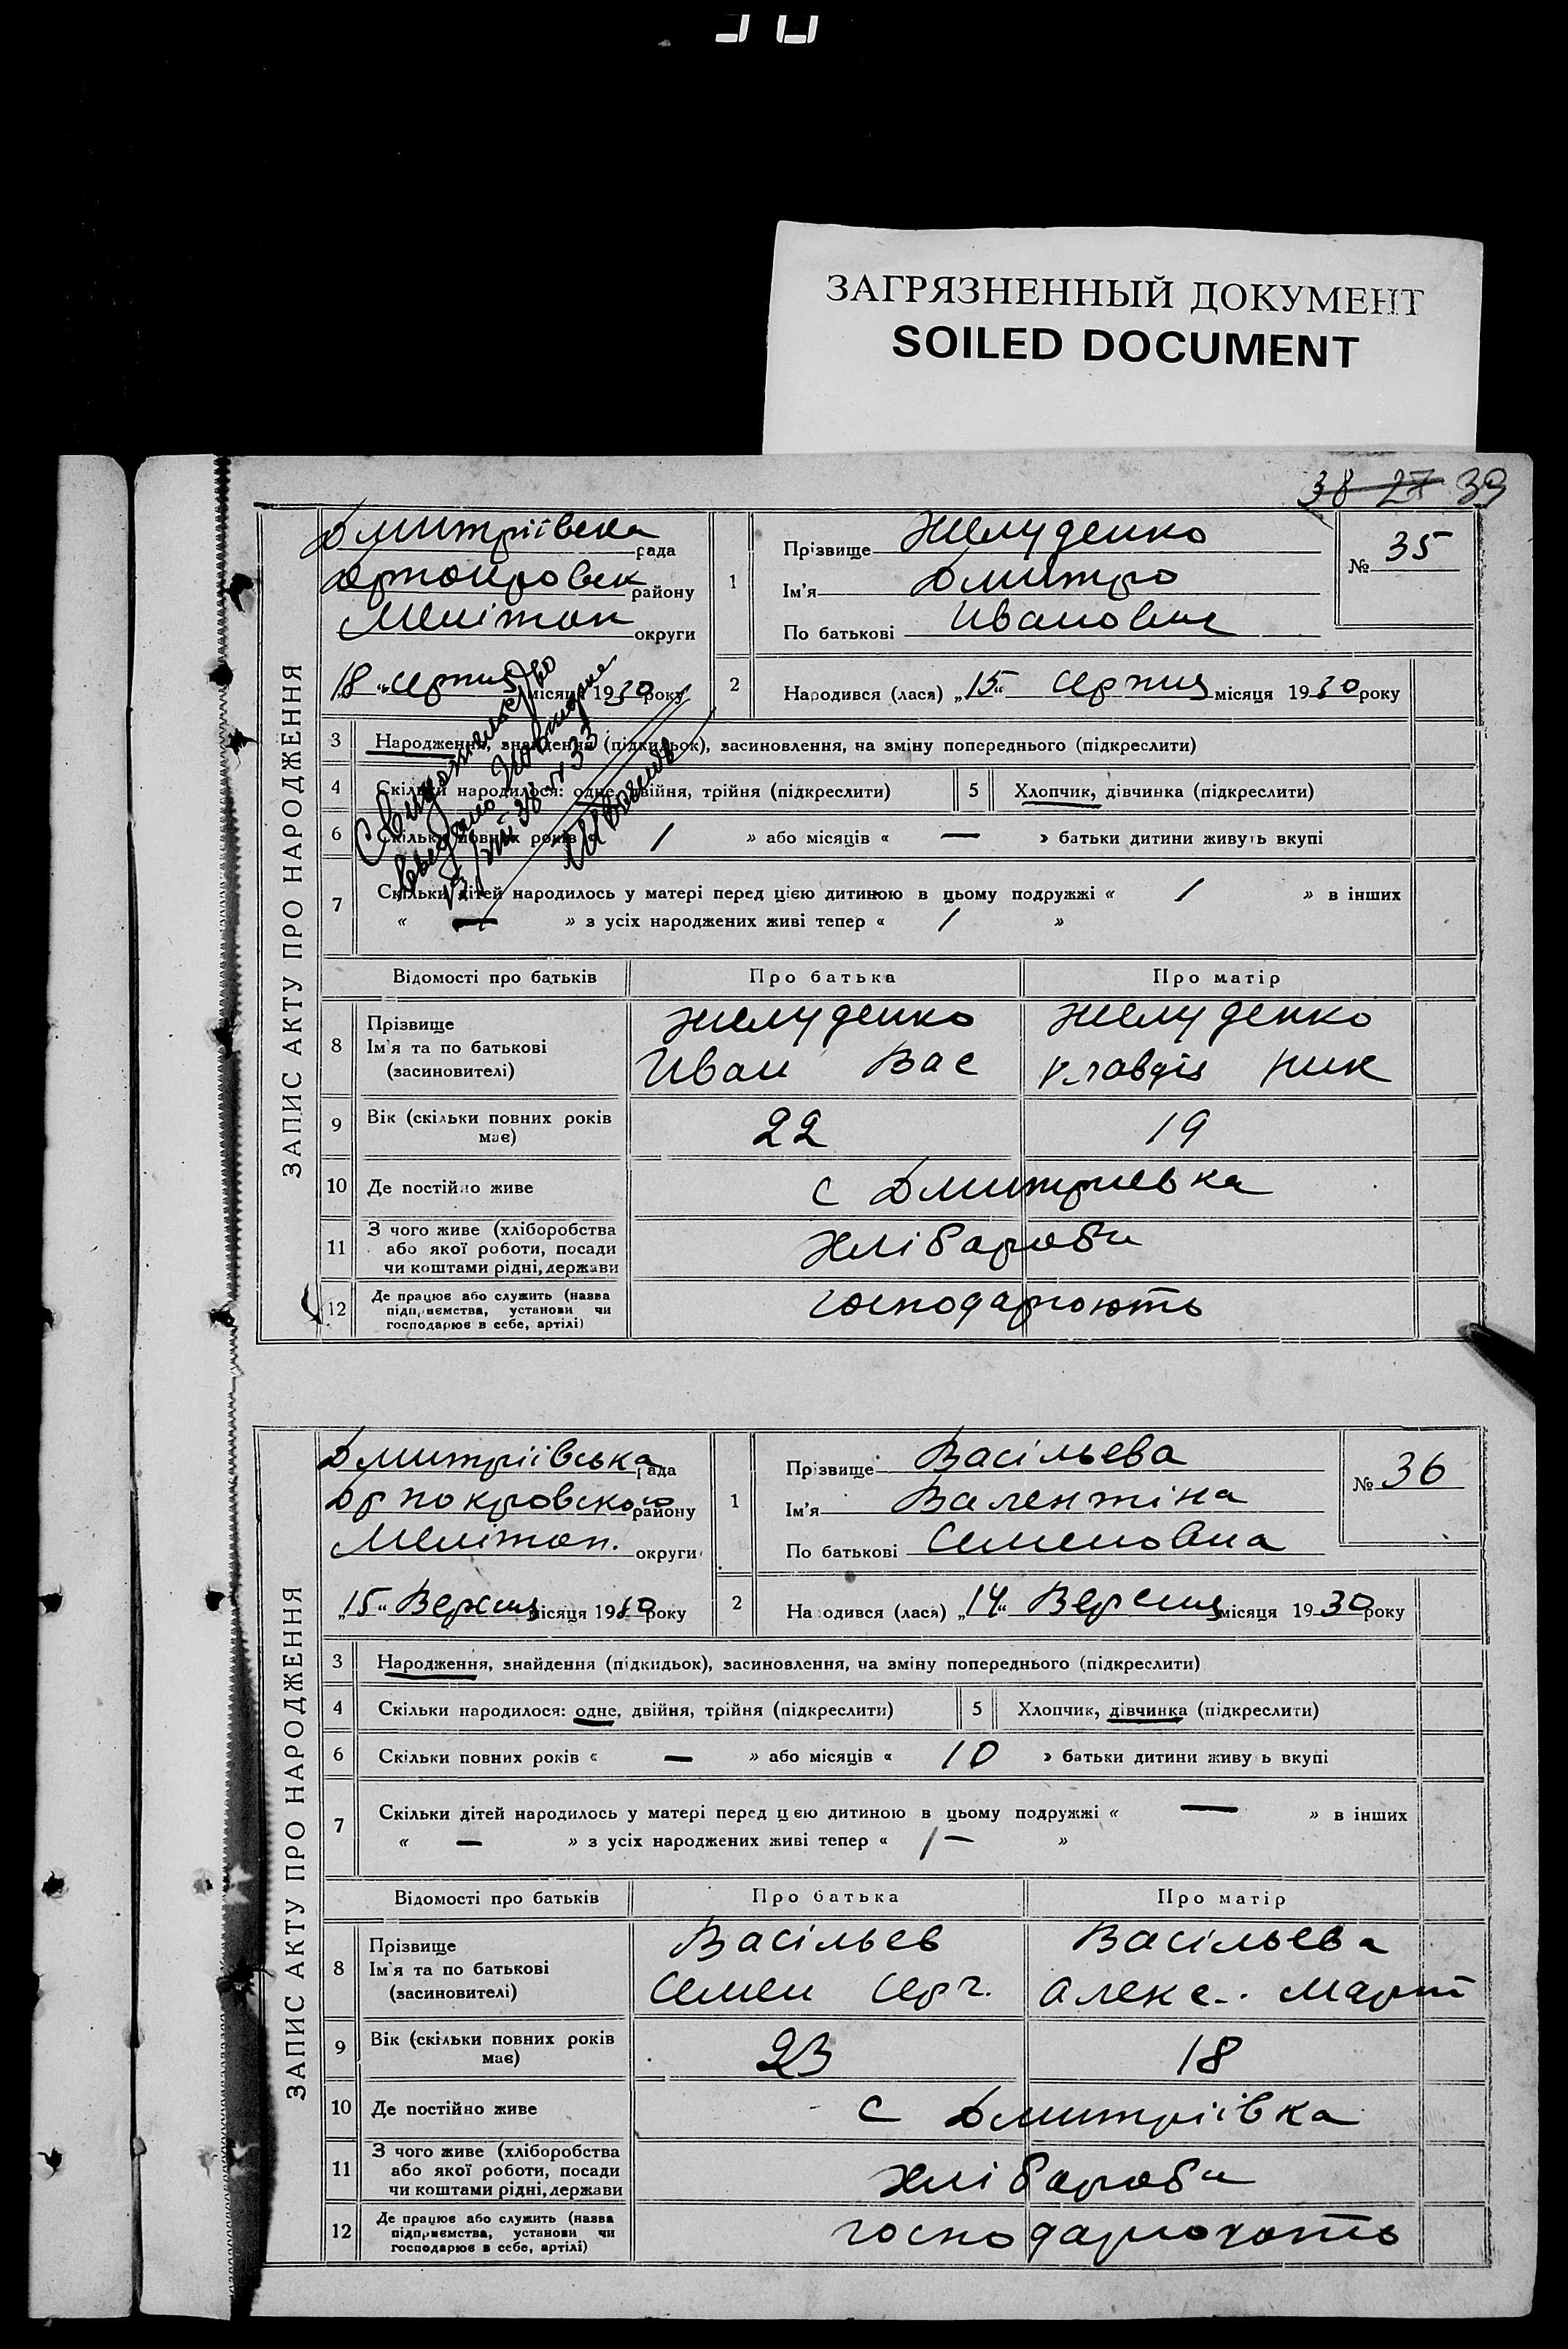 ЗАГРЯЗНЕННЫЙ ДОКУМЕНТ
SOILED DOCUMENT
38 27 39
ЗАПИС АКТУ ПРО НАРОДЖЕННЯ
Дмитріївска рада
района
Мелітоп округи
18 „ серпня місяця 1930 року
1
Прізвище Желуденко
Ім'я Дмитро
По батькові Иванович
№ 35
2
Народився (лася) „15“ серпня місяця 1930 року
3 Народження, знайдення (підкидьок), засиновлення, на зміну попереднього (підкреслити)
4 Скільки народилося: одне, двійня, трійня (підкреслити)
5 Хлопчик, дівчинка (підкреслити)
6 Скільки повних років « 1 » або місяців « — » батьки дитини живуть вкупі
7 Скільки дітей народилось у матері перед цією дитиною в цьому подружжі « 1 » в інших
« — » з усіх народжених живі тепер « 1 »
Відомості про батьків Про батька Про матір
8 Прізвище
Ім'я та по батькові
(засиновителі)
Желуденко
Иван Вас
Желуденко
Клавдія Ник
9 Вік (скільки повних років
має)
22 19
10 Де постійно живе с Дмитриевка
11 З чого живе (хліборобства
або якої роботи, посади
чи коштами рідні, держави
Хлібароби
12 Де працює або служить (назва
підприємства, установи чи
господарює в себе, артілі)
господарюють
ЗАПИС АКТУ ПРО НАРОДЖЕННЯ
Дмитріївська рада
Др покровского району
Мелітоп. округи
„15“ Вересня місяця 1930 року
1
Прізвище Васільева
Ім'я Валентіна
По батькові Семеновна
№ 36
2
Народився (лася) „14“ Вересня місяця 1930 року
3 Народження, знайдення (підкидьок), засиновлення, на зміну попереднього (підкреслити)
4 Скільки народилося: одне, двійня, трійня (підкреслити)
5 Хлопчик, дівчинка (підкреслити)
6 Скільки повних років « — » або місяців « 10 » батьки дитини живу ь вкупі
7 Скільки дітей народилось у матері перед цєю дитиною в цьому подружжі « — » в інших
« — » з усіх народжених живі тепер « 1 — »
Відомості про батьків Про батька Про матір
8 Прізвище
Ім'я та по батькові
(засиновителі)
Васільев
Семен Серг.
Васільева
Алекс.. Март
9 Вік (скільки повних років
має)
23 18
10 Де постійно живе с Дмитріівка
11 З чого живе (хліборобства
або якої роботи, посади
чи коштами рідні, держави
Хлібароби
12 Де працює або служить (назва
підприємства, установи чи
господарює в себе, артілі)
господарюють